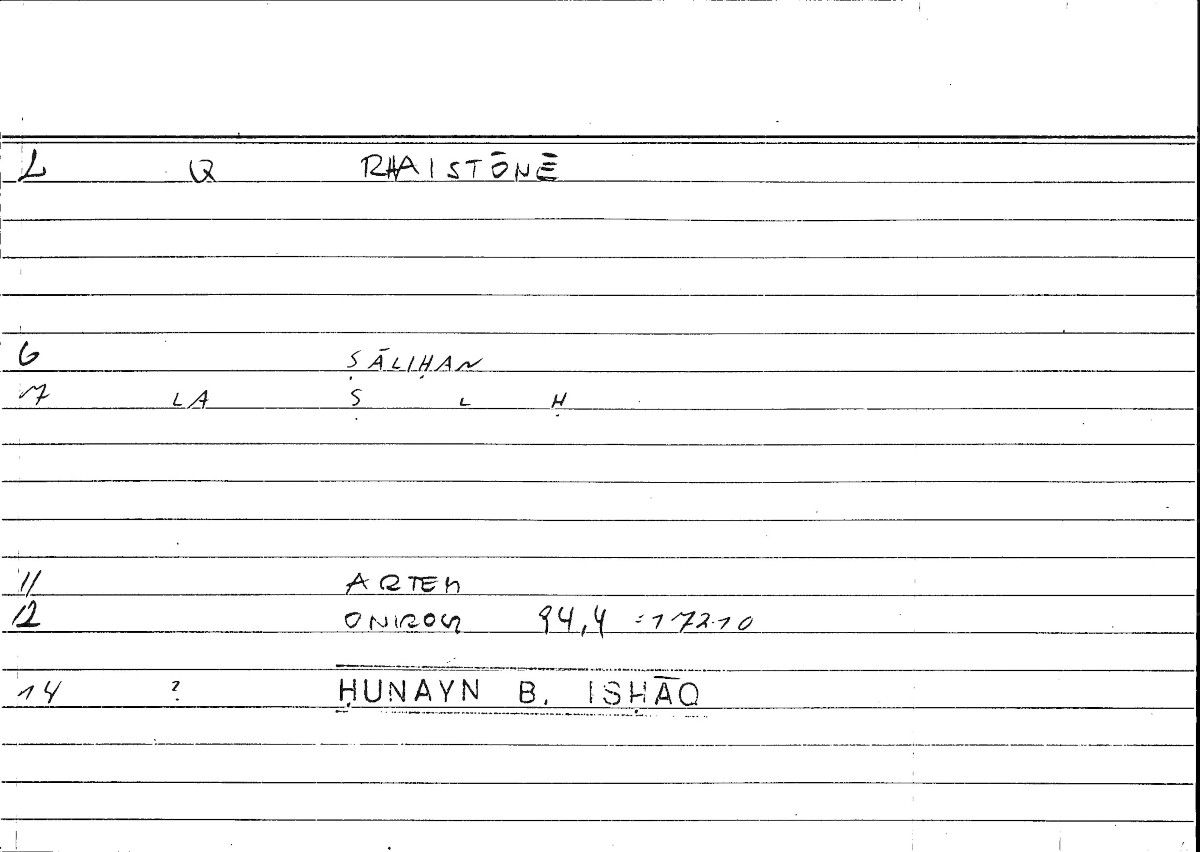 L Q RHAISTŌNĒ
6 ṢĀLIḤAN
7 LA Ṣ L Ḥ
11 ARTEM
12 ONIROCR 94,4 =172.10
14 ? ḤUNAYN B. ISḤĀQ